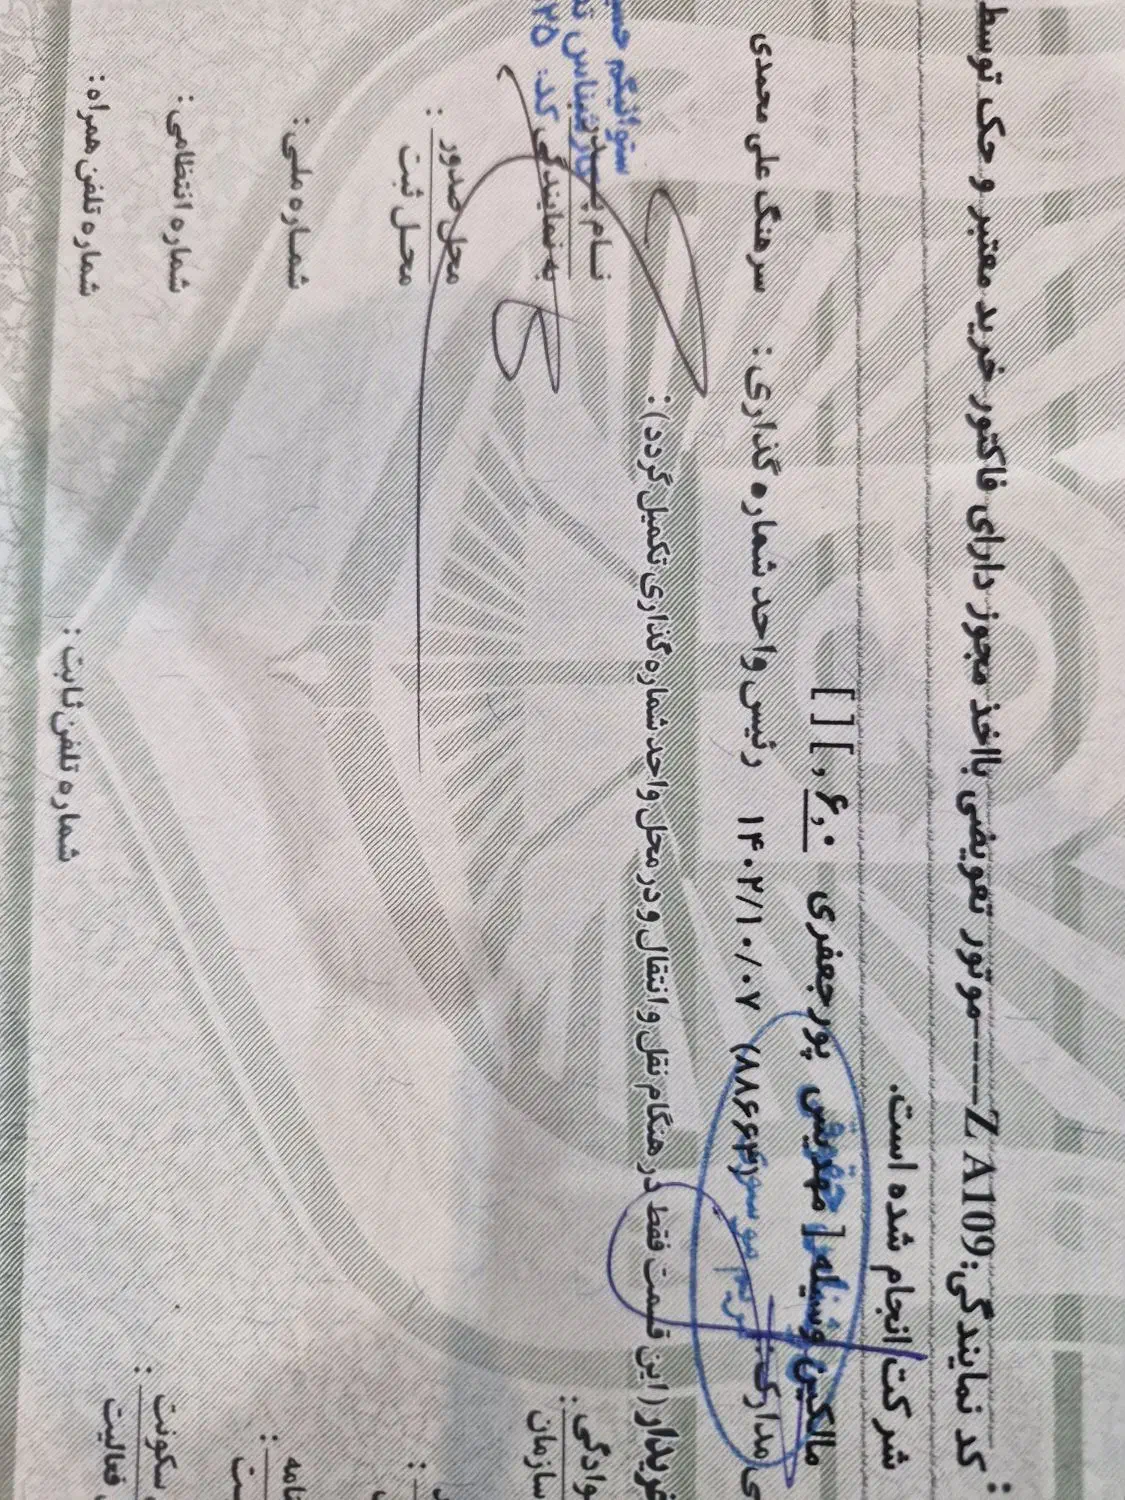 موتور تعویضی بااخذ مجوز دارای فاکتور خرید معتبر و حک توسط ----Z A109:کد نمایندگی
شرکت انجام شده است.
مالکین وسیله [ مهدیس پورجعفری ۶٫۰ , ] [ ]
مدارک: (۸۸۶۶۳) ۱۴۰۲/۱۰/۰۷ رئیس واحد شماره گذاری : سرهنگ علی محمدی
خریدار (این قسمت فقط در هنگام نقل و انتقال و در محل واحد شماره گذاری تکمیل گردد) :
ستوانیکم
کارشناس
کد
نام پدر
سازمان :
به نمایندگی
محل صدور :
محل ثبت
شماره ملی :
سکونت :
فعالیت
شماره انتظامی :
شماره تلفن همراه :
شماره تلفن ثابت :